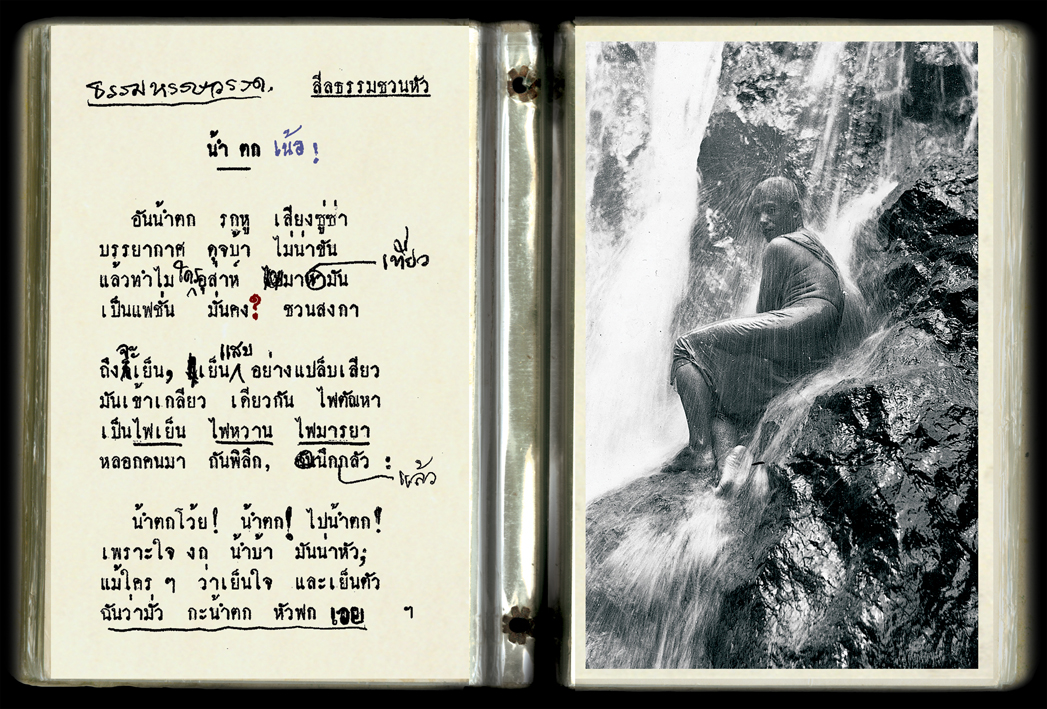 ธรรมหรรษวรรค.
ศีลธรรมชวนหัว
น้ำ ตก เน้อ!
อันน้ำตก รกหู เสียงซู่ซ่า
บรรยากาศ ดุจบ้า ไม่น่าขัน
เที่ยว
แล้วทำไม ใคร อุส่าห์ มา มัน
เป็นแฟชั่น มั่นคง? ชวนสงกา
ถึง จะเย็น, เย็น แสบ อย่างแปลีบเสียว
มันเข้าเกลียว เดียวกัน ไฟตัณหา
เป็นไฟเย็น ไฟหวาน ไฟมารยา
หลอกคนมา กันพิลึก, นึกกลัว :
แล้ว
น้ำตกโว้ย! น้ำตก! ไปน้ำตก!
เพราะใจ งก น้ำบ้า มันน่าหัว;
แม้ใคร ๆ ว่าเย็นใจ และเย็นตัว
ฉันว่ามั่ว กะน้ำตก หัวฟก เอย ฯ